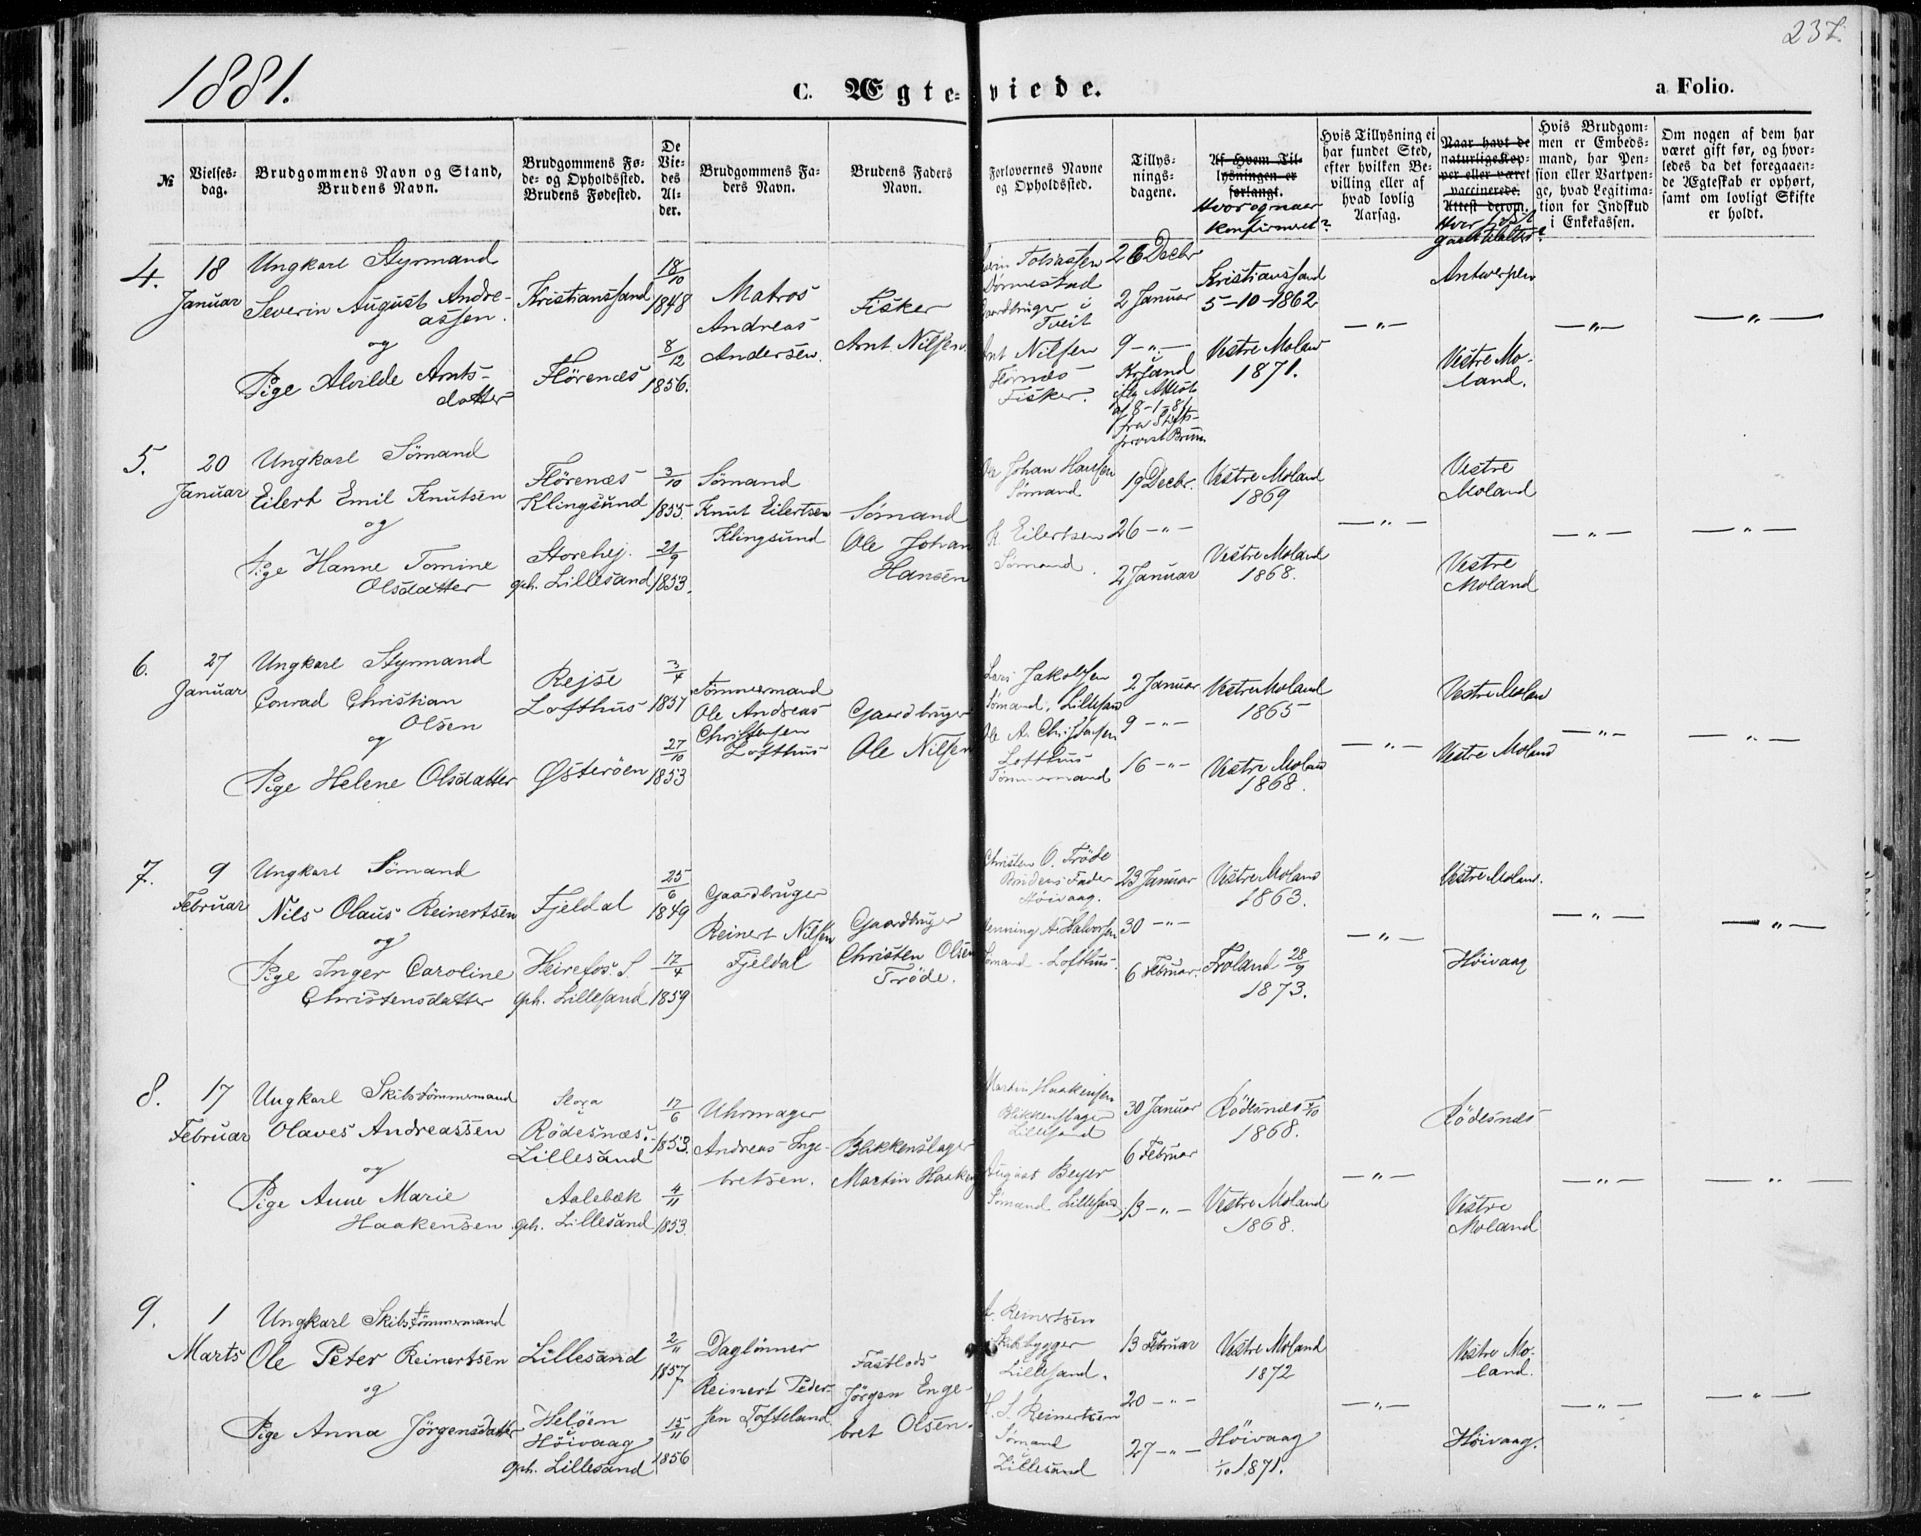 1881.
237.
C. Ægte-viede.
a Folio.
№
Vielses-
dag.
Brudgommens Navn og Stand,
Brudens Navn.
Brudgommens Fø-
de- og Opholdssted.
Brudens Fødested.
De
Vie-
des
Al-
der.
Brudgommens Fa-
ders Navn.
Brudens Faders
Navn.
Forlovernes Navne
og Opholdssted.
Tillys-
nings-
dagene.
Af Hvem Til-
lysningen er
forlangt.
Hvor og naar
konfirmeret?
Hvis Tillysning ei
har fundet Sted,
efter hvilken Be-
villing eller af
hvad lovlig
Aarsag.
Naar havt de
naturlige Kop-
per eller været
vaccinerede.
Attest derom.
Hvis Brudgom-
men er Embeds-
mand, har Pen-
sion eller Vartpen-
ge, hvad Legitima-
tion for Indskud
i Enkekassen.
Om nogen af dem har
været gift før, og hvor-
ledes da det foregaaen-
de Ægteskab er ophørt,
samt om lovligt Skifte
er holdt.
4.
18
Januar
Ungkarl Styrmand
Severin August Andre-
assen.
og
Pige Alvilde Arnts-
datter
Kristianssand
Flörenæs
18/10
1848
8/12
1856.
Matros
Andreas
Andersen.
Fisker
Arnt Nilsen.
Tveit
Nilsen
Fisker.
26 Decbr
2 Januar
9 -„-
Krsand
af 8-1-81
Kristianssand
5-10-1862
Vestre Moland
1871.
-„-
Antwerpen
Vestre Mo-
land.
-„-
-„-
5.
20
Januar
Ungkarl Sømand
Eilert Emil Knutsen
og
Pige Hanne Tomine
Olsdatter
Flörenæs
Klingsund
Storehej.
oph. Lillesand
3/10
1855.
21/9
1853.
Sømand
Knut Eilertsen
Klingsund
Sømand
Ole Johan
Hansen
Johan Hansen
Sømand
K. Eilertsen
Sømand.
19 Decbr.
26 -„-
2 Januar
Vestre Moland
1869
Vestre Moland
1868.
-„-
Vestre
Moland
Vestre
Moland
-„-
-„-
6.
27
Januar
Ungkarl Styrmand
Conrad Christian
Olsen
og
Pige Helene Olsdatter
Rejse
Lofthus
Østerøen
3/4
1857
27/10
1853
Tømmermand
Ole Andreas
Christensen
Lofthus
Gaardbruger
Ole Nilsen
Lars Jakobsen
Sømand, Lillesand
Ole A. Christensen
Lofthus
Tømmermand
2 Januar
9 -„-
16 -„-
Vestre Moland
1865
Vestre Moland
1868.
-„-
Vestre Moland
Vestre Moland
-„-
-„-
7.
9
Februar
Ungkarl Sømand
Nils Olaus Reinertsen
og
Pige Inger Caroline
Christensdatter
Fjeldal
Heirefos. S.
oph. Lillesand
25/6
1849
17/4
1859
Gaardbruger
Reinert Nilsen
Fjeldal
Gaardbruger
Christen Olsen
Tröde.
Christen O. Tröde
Brudens Fader
Höivaag.
Henning A. Halvorsen
Sømand - Lofthus.
23 Januar
30 -„-
6 Februar.
Vestre Moland
1863.
Froland 28/9
1873.
-„-
Vestre Moland.
Höivaag
-„-
-„-
8.
17
Februar
Ungkarl Skibstømmermand
Olaves Andreassen
og
Pige Anne Marie
Haakensen
Rödesnæs:
Lillesand
Aalebæk
oph. Lillesand
17/6
1853.
4/11
1853.
Uhrmager
Andreas Inge-
bretsen.
Blikkenslager
Martin Haaken
Martin Haakensen
Blikkenslager
Lillesand
August Beyer
Sømand Lillesand
30 Januar
6 Februar
13 -„-
Rödesnæs 4/10
1868.
Vestre Moland
1868.
-„-
Rödesnæs
Vestre
Moland
-„-
-„-
9.
1
Marts
Ungkarl Skibstømmermand
Ole Peter Reinertsen
og
Pige Anna Jörgensdatter
Lillesand
Helöen
Höivaag
oph. Lillesand
2/11
1857
15/11
1856
Daglønner
Reinert Peder-
sen Tofteland.
Jörgen Enge-
bret Olsen.
Reinertsen
Skibbygger
Lillesand.
Reinertsen
Sømand
Lillesand
13 Februar
20 -„-
27 -„-
Vestre Moland
1872
Höivaag
1/10 1871.
-„-
Vestre Mo-
land.
Höivaag.
-„-
-„-